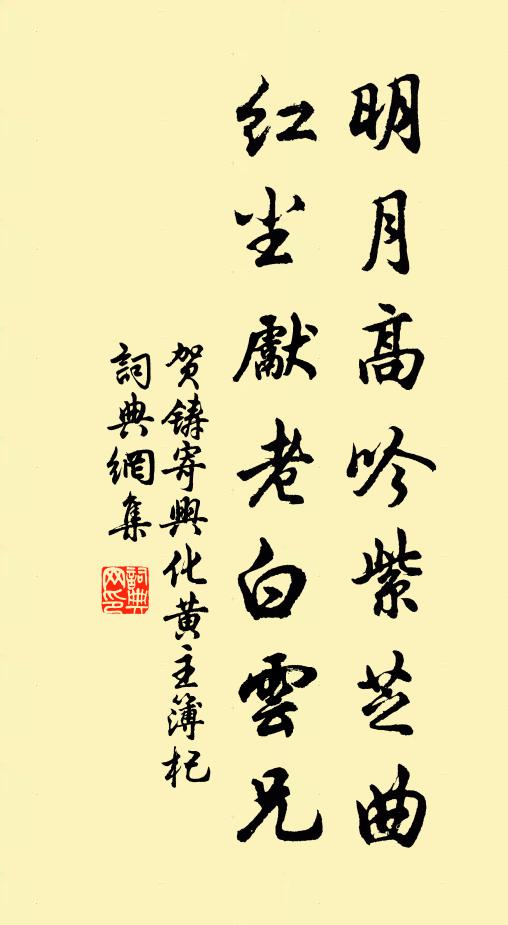 明月高吟紫芝曲
红尘獻老白雲兄
贺鑄寄興化黄主簿杞
詞典網集
詞典網印